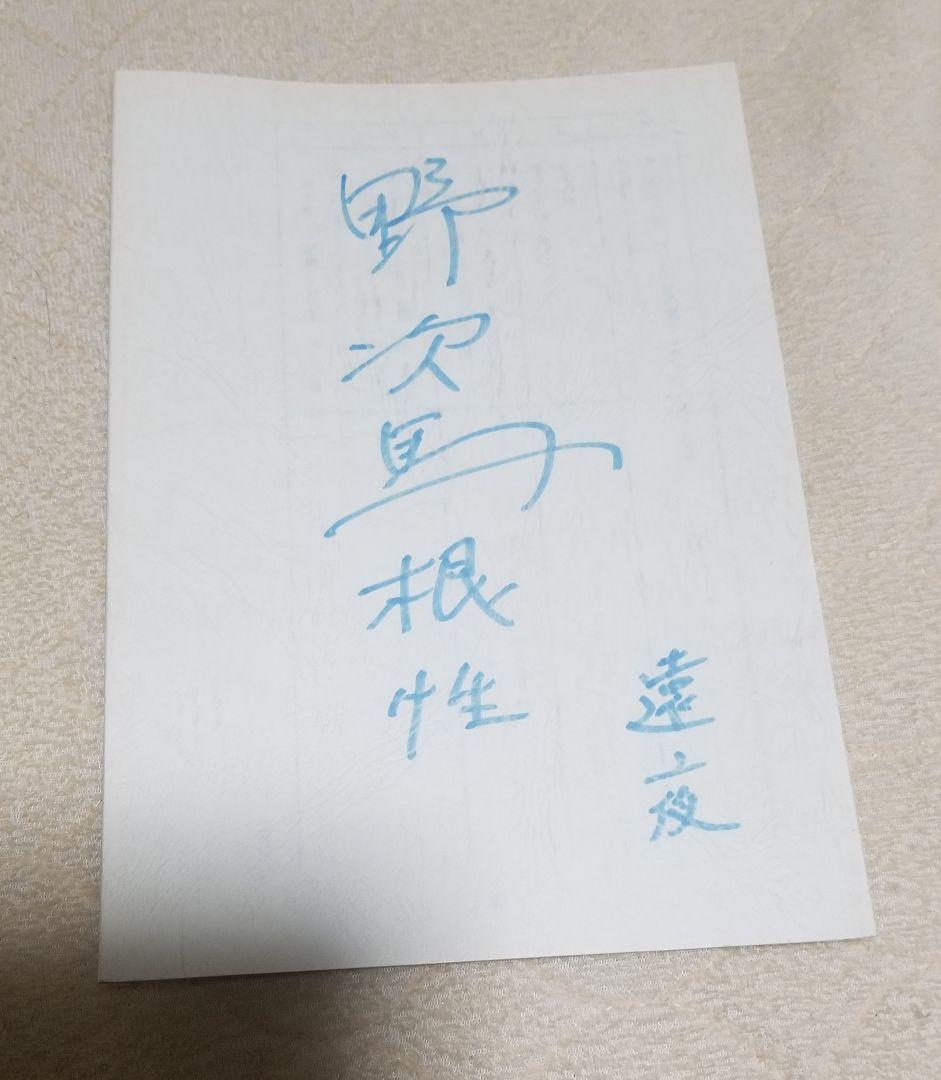 野次馬根性
遠夜